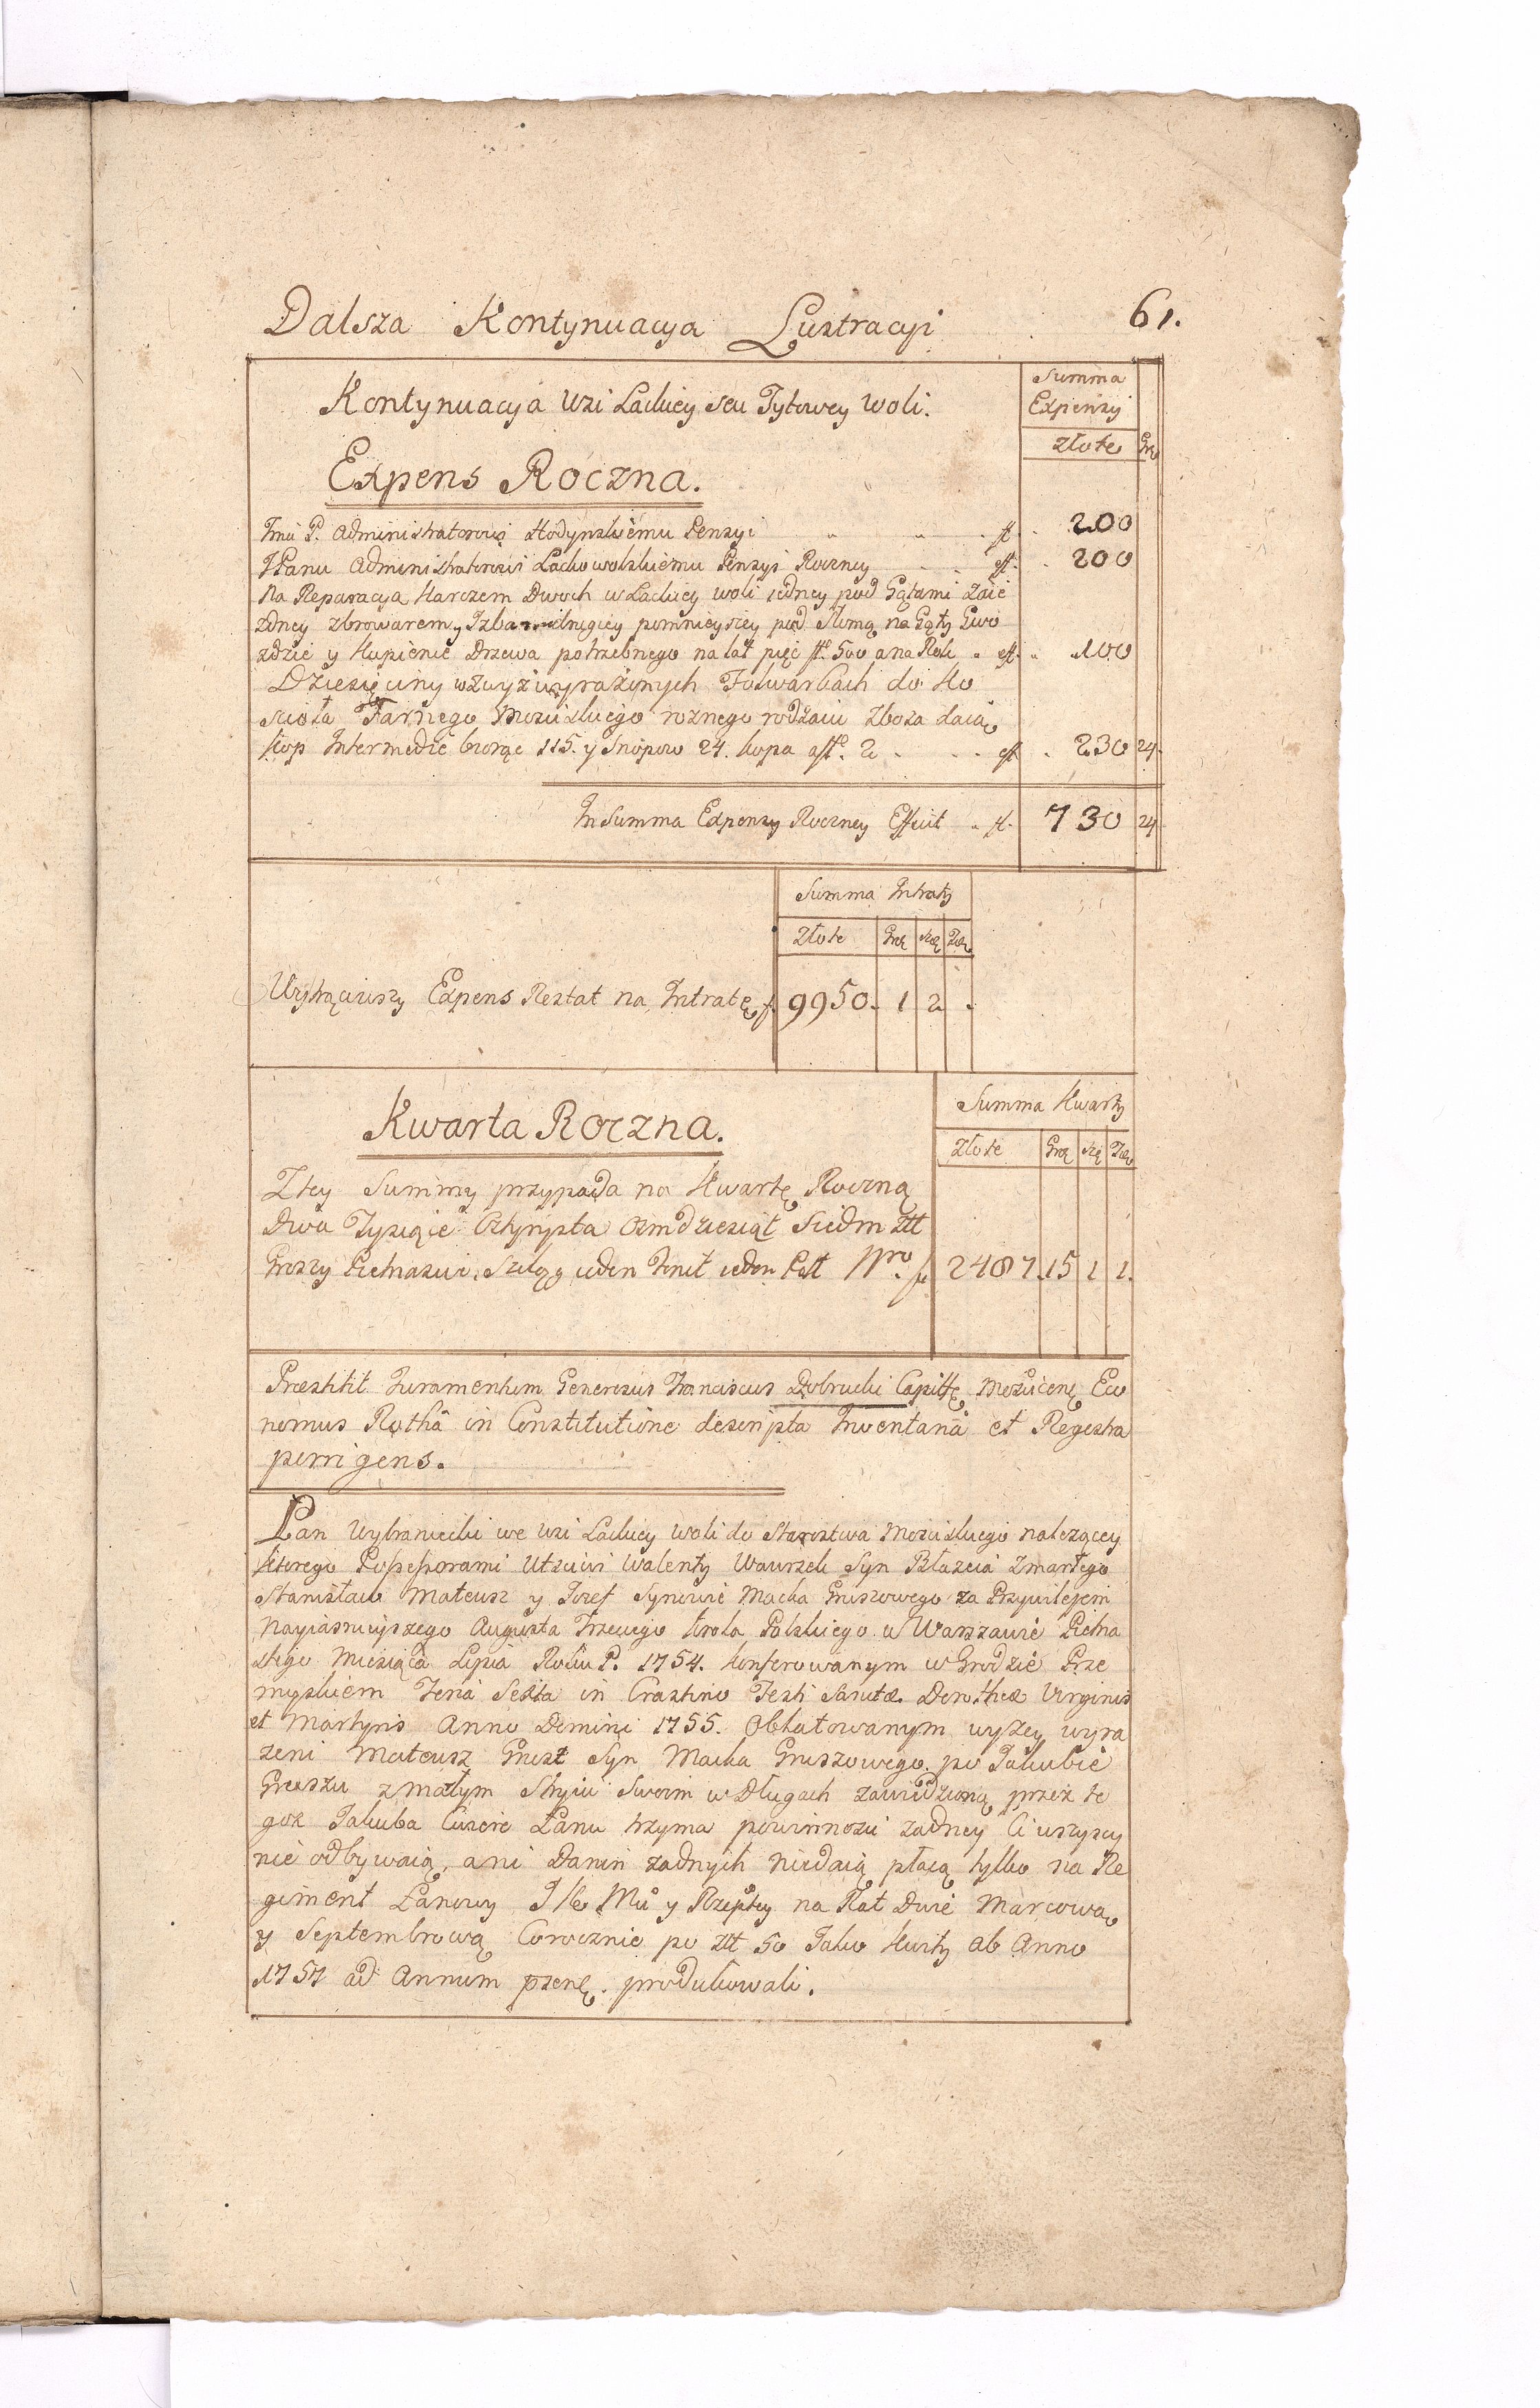 Dalsza Kontynuacya Lustracyi 61.
Kontynuacya Wsi Lackiey seu Tytowey Woli.
Summa
Expensy
Złote Gro
Expens Roczna.
Jmci P. Administratorowi Hodynskiemu Pensyi fl. 200
JPanu Administratorowi Lackowolskiemu Pensyi Roczney fl. 200
Na Reparacyą Karczem Dwoch w Lackiey Woli iedney pod Gątami Zaie
zdney zbrowarem y Izbami drugiey pomnieyszey pod Słomą na Gąty Gwo
zdzie y Kupienie Drzewa potrzebnego na lat pięć fl. 500 a na Rok fl. 100
Dziesięciny wzwyż wyrażonych Folwarkach do Ko
scioła Farnego Mosciskiego roznego rodzaiu Zboza daią
kop Intermedie biorąc 115. y Snopow 24. kopa a fl. 2 fl. 230 24
In Summa Expensy Roczney Efficit fl. 730 24
Summa Intraty
Złote Gro Sze
Wytrąciwszy Expens Restat na Intratę f. 9950. 1 2
Kwarta Roczna.
Summa Kwarty
Złote Gro Sze
Z tey Summy przypada na Kwartę Roczną
Dwa Tysiące Cztyrysta Osmdziesiąt Siedm Złt
Groszy Pietnascie, Szeląg ieden ieden Pol Nro. f. 2487. 15 1 1.
Præstitit Juramentum Generosus Franciscus Dobrucki Capittę Mosciceñ Eco
nomus Rothâ in Constitutione descripta Inventaria et Regestra
porrigens.
Łan Wybraniecki we Wsi Lackiey Woli do Starostwa Mosciskiego należącey
ktorego Possessorami Utsciwi Walenty Wawrzek Syn Błazeia Zmarłego
Stanisław Mateusz y Jozef Synowie Macka Gruszowego za Przywilejem
Nayiasnieyszego Augusta Trzeciego Krola Polskiego w Warszawie Pietna
stego Miesiąca Lipca Roku P. 1754. konferowanym w Grodzie Prze
myskiem Feria Sexta in Crastino Festi Sanctæ Dorotheæ Virginis
et Martyris Anno Domini 1755. Oblatowanym wyzey wyra
zeni Mateusz Syn Macka Gruszowego po Jakubie
Gruszu zmarłym Stryiu Swoim w Długach zawiedzioną przez te
goz Jakuba Cwierc Łanu trzyma powinnosci zadney Ci wszyscy
nie odbywaią, ani Danin zadnych niedaią płacą tylko na Re
giment Łanowy J K Mci y Rzeptey na Rat Dwie Marcową
y Septembrową Corocznie po Złt 50 Jako Kwity ab Anno
1757 ad Annum pseñs. produkowali.